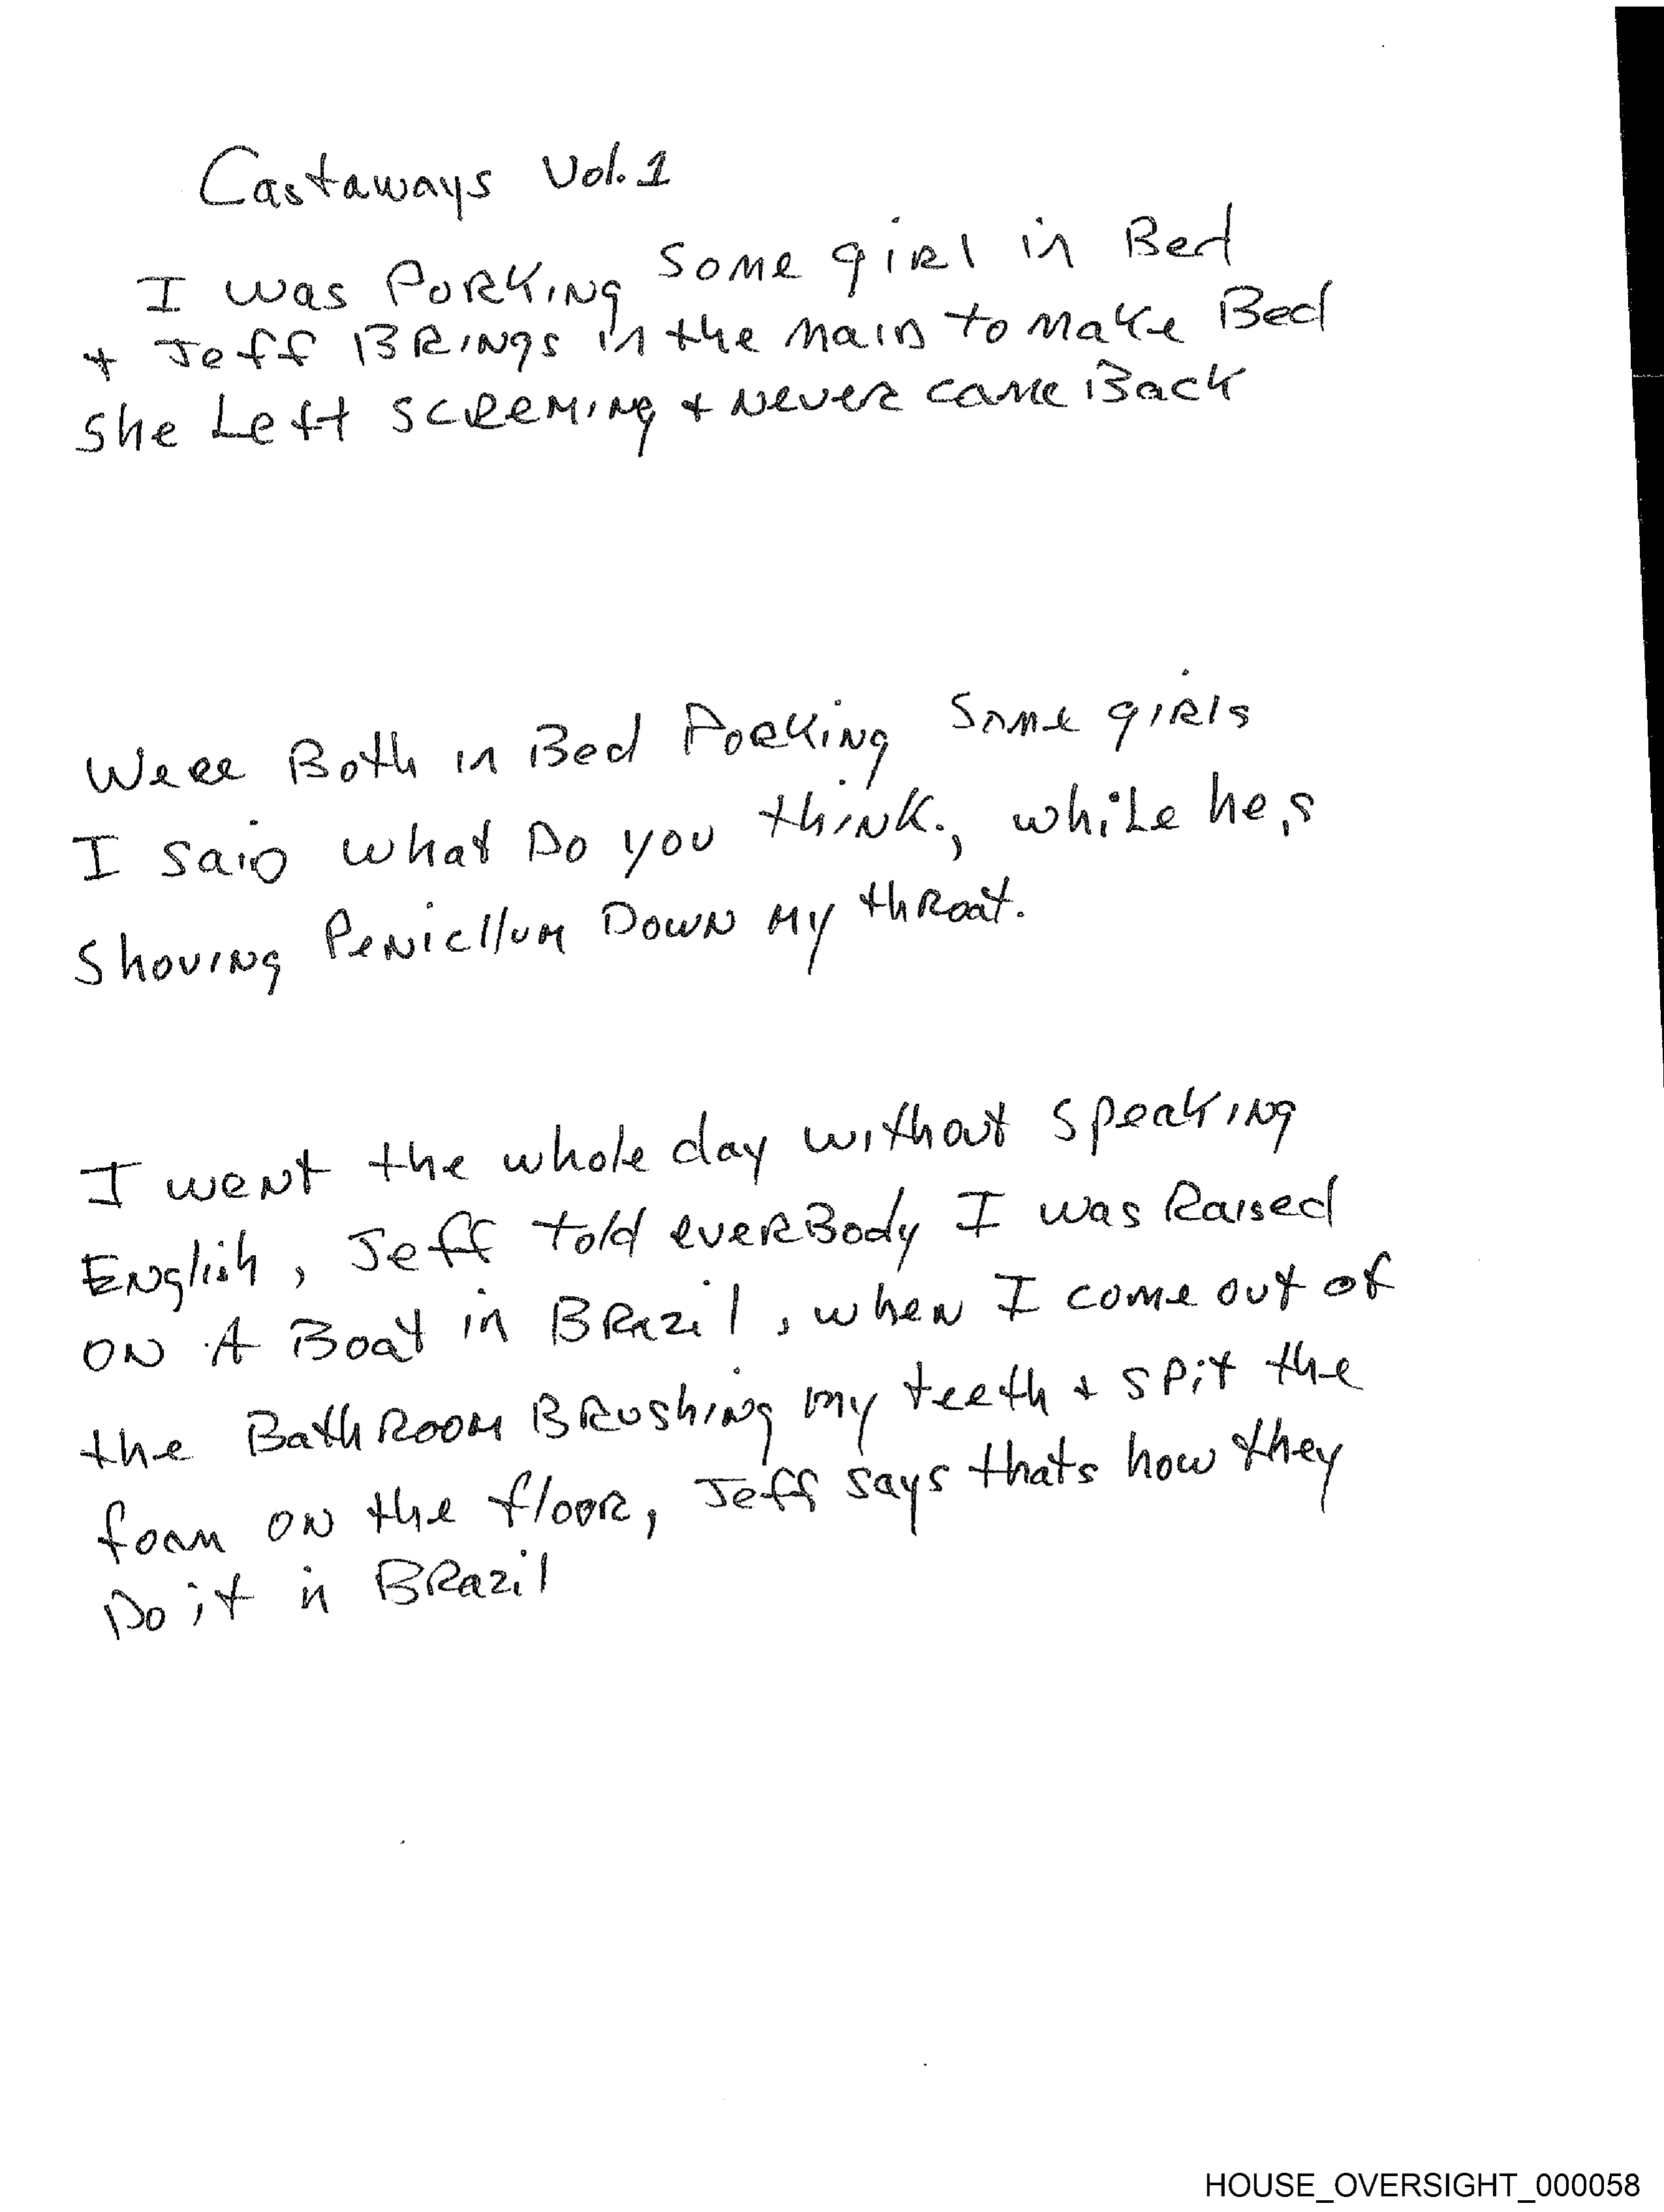 Castaways Vol. 1
I was Porking Some girl in Bed
+ Jeff Brings in the maid to make Bed
She Left Screming + Never came Back
Were Both in Bed Porking Some girls
I said what Do you think., while he,s
Shoving Penicllum Down my throat.
I went the whole day without speaking
English, Jeff told everBody I was Raised
ON A Boat in Brazil, when I come out of
the BathRoom Brushing my teeth + spit the
foam ON the floor, Jeff says thats how they
Do it in Brazil
HOUSE_OVERSIGHT_000058